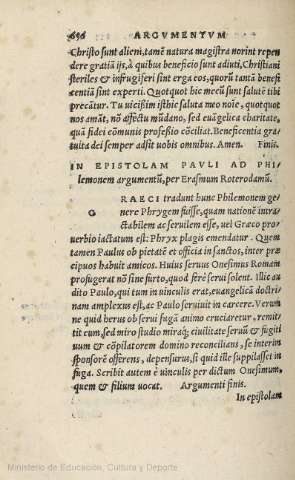 696 ARGVMENTVM
Christo sunt alieni, tamẽ natura magistra norint repen
dere gratiã ijs, à quibus beneficio sunt adiuti, Christiani
steriles & infrugiferi sint erga eos, quorũ tantã benefi
centiã sint experti. Quotquot hic mecũ sunt salutẽ tibi
precãtur. Tu uicissim isthic saluta meo noĩe, quotquot
nos amãt, nõ affectu mũdano, sed euãgelica charitate,
quã fidei cõmunis professio cõciliat. Beneficentia gra-
tuita dei semper adsit uobis omnibus. Amen. Finis.
IN EPISTOLAM PAVLI AD PHI/
lemonem argumentũ, per Erasmum Roterodamũ.
G RAECI tradunt hunc Philemonem ge
nere Phrygem fuisse, quam nationẽ intra
ctabilem ac seruilem esse, uel Graeco pro
uerbio iactatum est: Phryx plagis emendatur. Quem
tamen Paulus ob pietatẽ et officia in sanctos, inter præ
cipuos habuit amicos. Huius seruus Onesimus Romam
profugerat nõ sine furto, quod ferè serui solent. Illic au
dito Paulo, qui tum in uinculis erat, euangelicã doctri
nam amplexus est, ac Paulo seruiuit in carcere. Verum
ne quid herus ob serui fugã animo cruciaretur, remit
tit eum, sed miro studio miraq; ciuilitate seruũ & fugiti
uum & cõpilatorem domino reconcilians, se interim
sponsorẽ offerens, depensurus, si quid ille suppilasset in
fuga. Scribit autem è uinculis per dictum Onesimum,
quem & filium uocat. Argumenti finis.
In epistolam
Ministerio de Educación, Cultura y Deporte